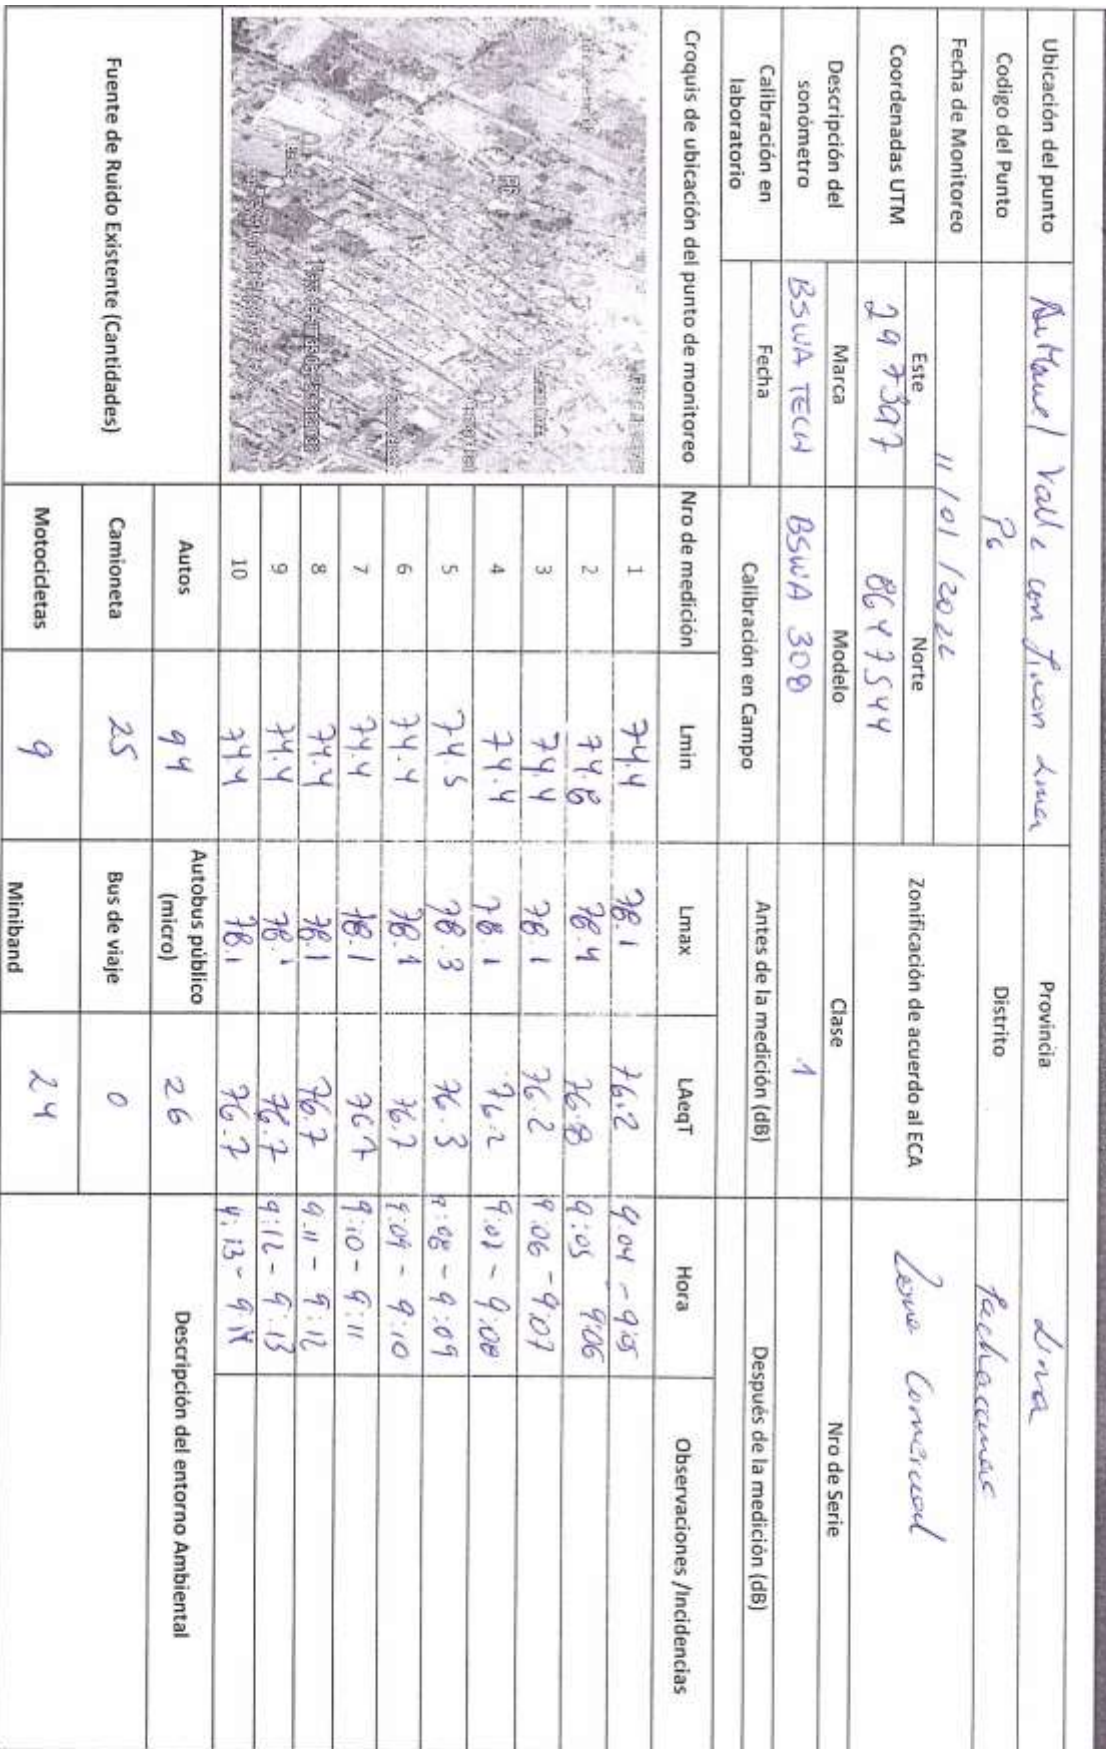 Ubicación del punto Av Manuel Valle con Jiron Lima Provincia Lima
Codigo del Punto P6 Distrito Pachacamac
Fecha de Monitoreo 11/01/2022
Zonificación de acuerdo al ECA Zona Comercial
Coordenadas UTM
Este Norte
297397 8647544
Descripción del sonómetro
Marca Modelo Clase Nro de Serie
BSWA TECH BSWA 308 1
Calibración en laboratorio
Fecha
Calibración en Campo
Antes de la medición (dB) Después de la medición (dB)
Croquis de ubicación del punto de monitoreo
Nro de medición Lmin Lmax LAeqT Hora Observaciones /Incidencias
1 74.4 78.1 76.2 9:04 - 9:05
2 74.8 78.4 76.8 9:05 9:06
3 74.4 78.1 76.2 9:06 - 9:07
4 74.4 78.1 76.2 9:07 - 9:08
5 74.5 78.3 76.3 9:08 - 9:09
6 74.4 78.1 76.7 9:09 - 9:10
7 74.4 78.1 76.7 9:10 - 9:11
8 74.4 78.1 76.7 9:11 - 9:12
9 74.4 78.1 76.7 9:12 - 9:13
10 74.4 78.1 76.7 9:13 - 9:14
Fuente de Ruido Existente (Cantidades)
Autos 94 Autobus público (micro) 26 Descripción del entorno Ambiental
Camioneta 25 Bus de viaje 0
Motocicletas 9 Miniband 24